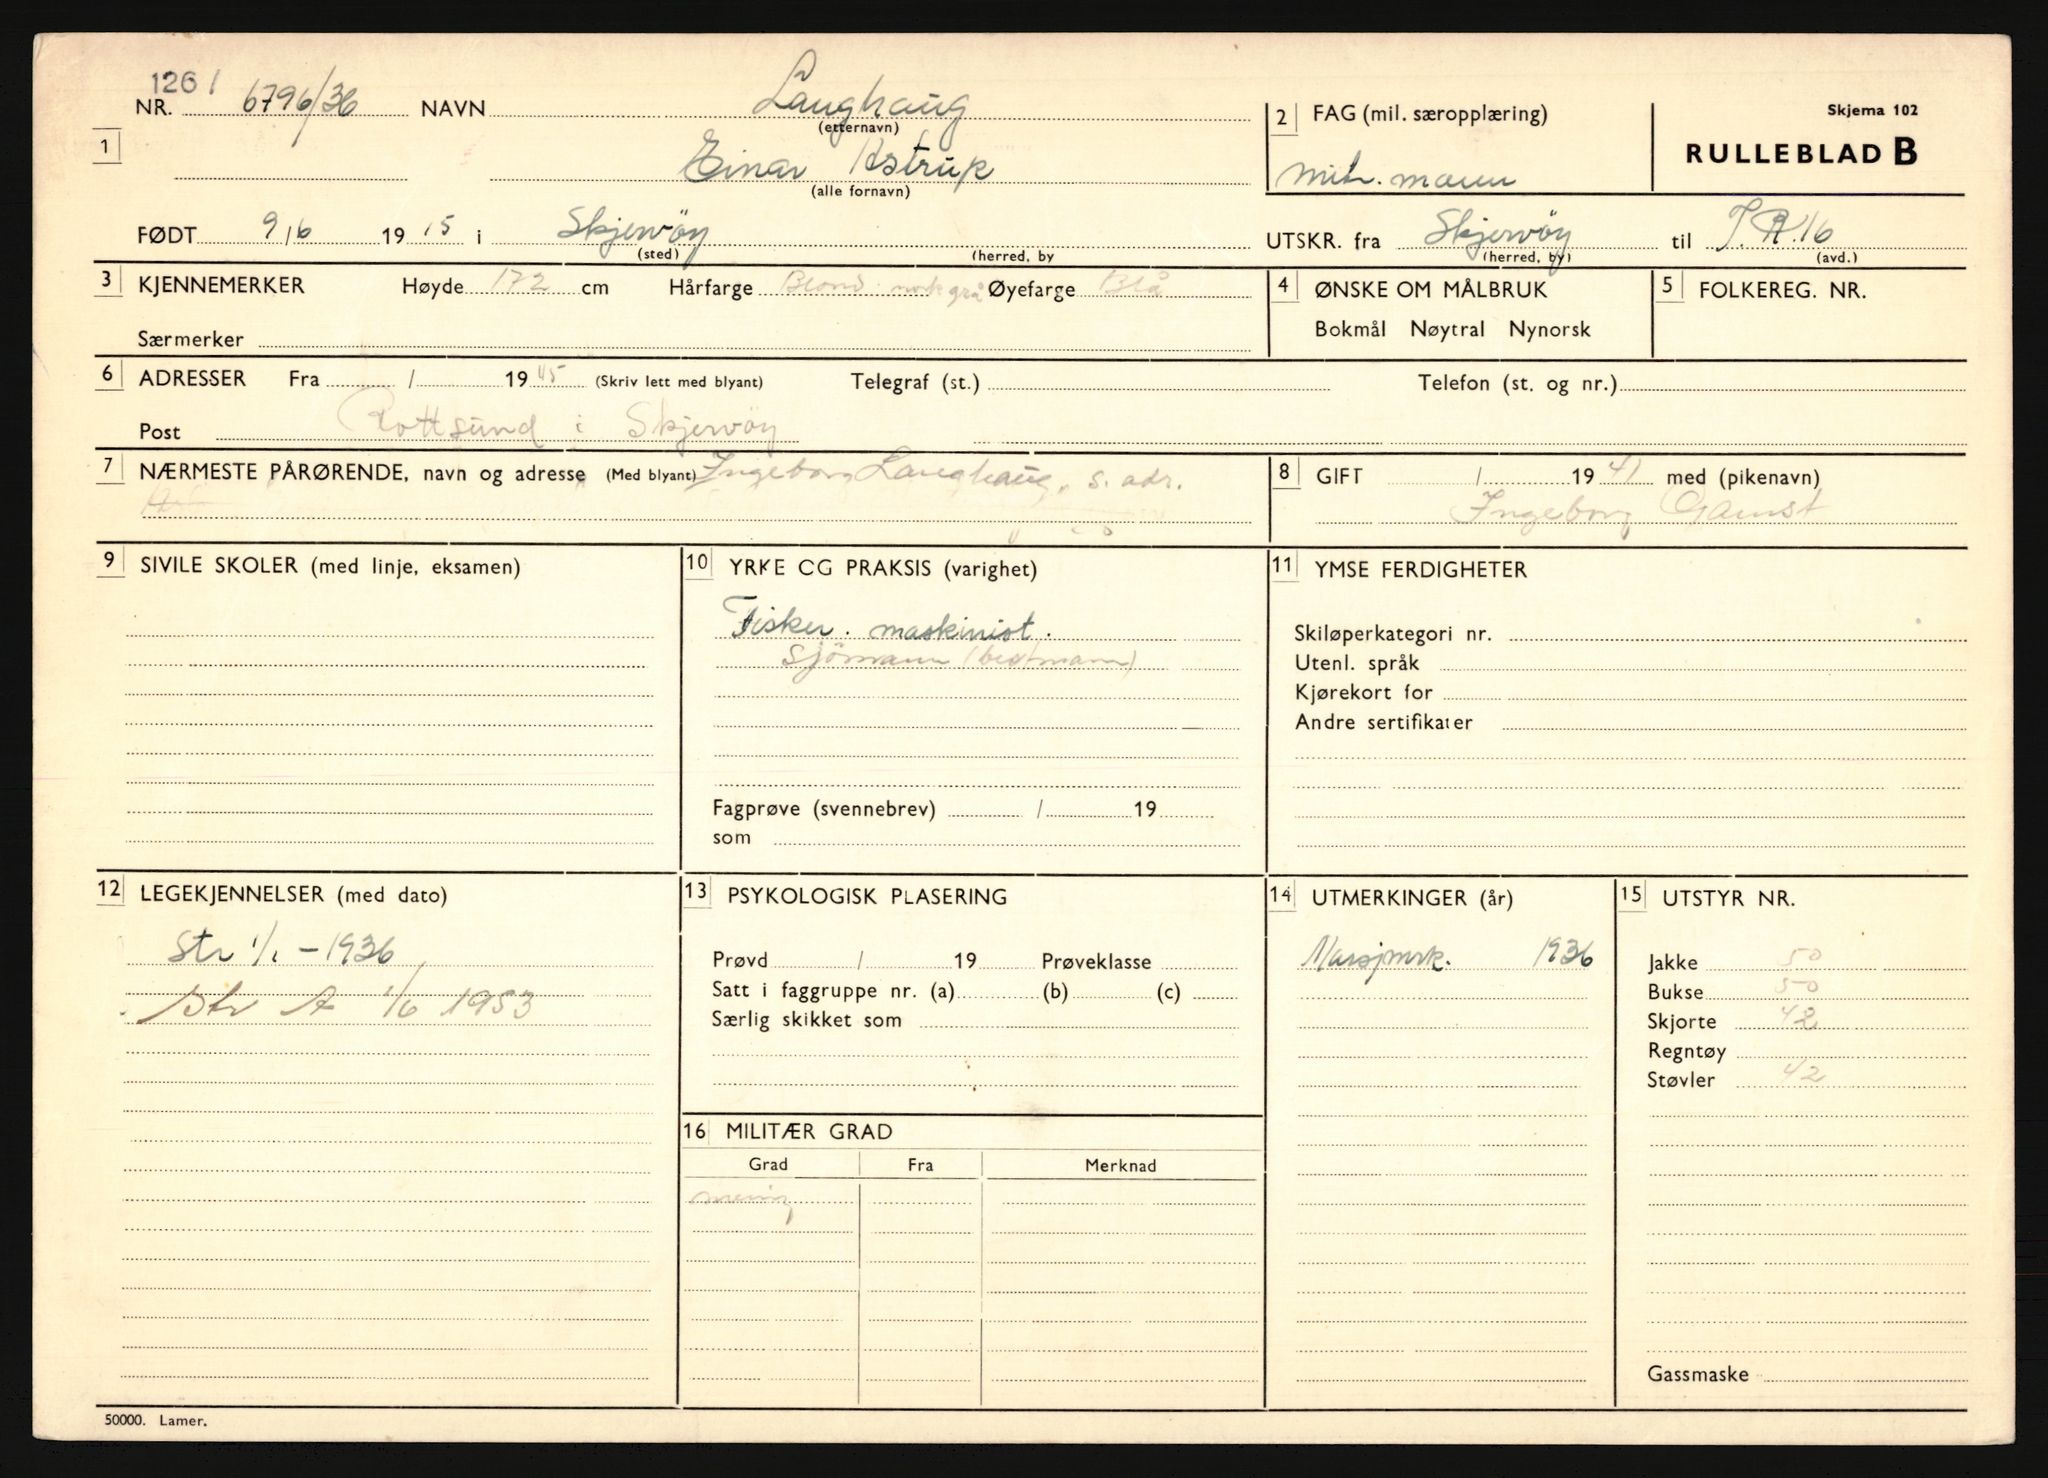 1261
NR. 6796/36 NAVN Laughaug
(etternavn)
2 FAG (mil. særopplæring)
Skjema 102
RULLEBLAD B
1
Einar Astrup
(alle fornavn)
mitr. mann
FØDT 9/6 1915 i Skjervöy
(sted) (herred, by
UTSKR. fra Skjervöy til I.R.16
(herred, by) (avd.)
3 KJENNEMERKER Høyde 172 cm Hårfarge Blond Øyefarge Blå
Særmerker
4 ØNSKE OM MÅLBRUK
Bokmål Nøytral Nynorsk
5 FOLKEREG. NR.
6 ADRESSER Fra / 1945 (Skriv lett med blyant) Telegraf (st.) Telefon (st. og nr.)
Post Rottsund i Skjervöy
7 NÆRMESTE PÅRØRENDE, navn og adresse (Med blyant) Ingeborg Laughaug, s. adr.
8 GIFT / 1941 med (pikenavn)
Ingeborg Gamst
9 SIVILE SKOLER (med linje, eksamen)
10 YRKE CG PRAKSIS (varighet)
Fisker. maskinist.
Sjömann (bestmann)
Fagprøve (svennebrev) / 19
som
11 YMSE FERDIGHETER
Skiløperkategori nr.
Utenl. språk
Kjørekort for
Andre sertifikater
12 LEGEKJENNELSER (med dato)
Str 1/1 - 1936
Str A 1/6 1953
13 PSYKOLOGISK PLASERING
Prøvd / 19 Prøveklasse
Satt i faggruppe nr. (a) (b) (c)
Særlig skikket som
14 UTMERKINGER (år)
Marsjmrk. 1936
15 UTSTYR NR.
Jakke 50
Bukse 50
Skjorte 42
Regntøy
Støvler 42
Gassmaske
16 MILITÆR GRAD
Grad Fra Merknad
menig
50000. Lamer.